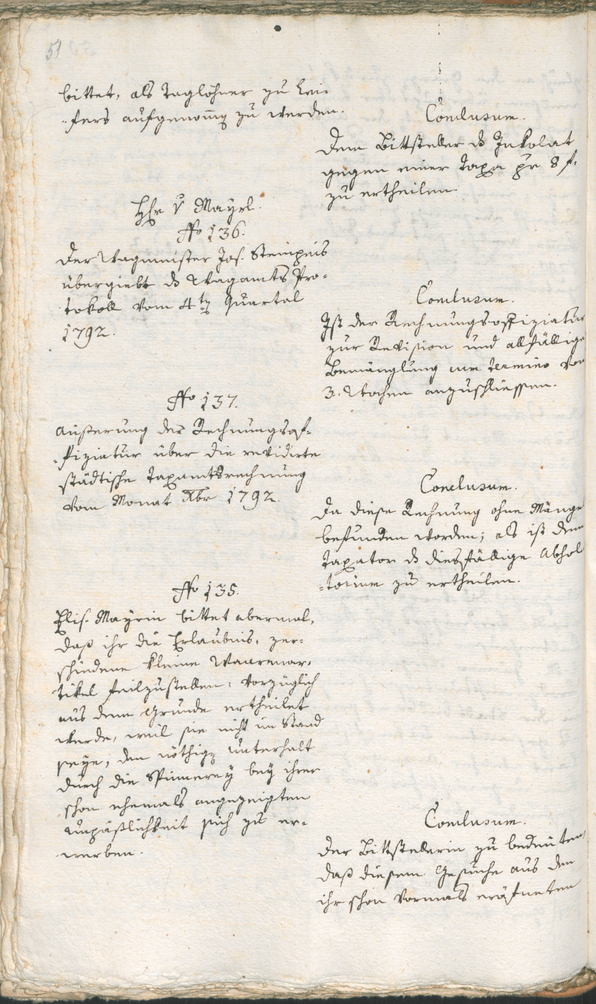 51
bittet, als Taglöhner zu
fers aufgenom̄en zu werden.
Conclusum.
Dem Bittsteller ds Inkolat
gegen einer Taxa pr 8 f.
zu ertheilen
Hr v Mayrl.
No 136.
Der Wagmeister Jos.
übergiebt ds Wagamts Pro-
tokoll vom 4tn Quartal
1792.
Conclusum.
Ist der Rechnungsoffiziatur
zur Revision und allfällige
Bemänglung cum termino von
3. Wochen anzuschliessen.
No 137.
Äußerung der Rechnungsof-
fiziatur über die revidirte
städtische Taxamtsrechnung
vom Monat Xbr 1792
Conclusum.
Da diese Rechnung ohne Mänge
befunden worden; als ist dem
Taxator ds diesfällige Absol
torium zu ertheilen.
No 135.
Elis. Mayrin bittet abermal,
daß ihr die Erlaubnis, ver-
schiedene kleine Waarenar-
tikel feilzustellen, vorzüglich
aus dem Grunde ertheilet
werde, weil sie nicht im Stand
seye, den nöthign Unterhalt
durch die Spinnerey bey ihrer
schon ehemals angezeigten
Unpäßlichkeit sich zu er-
werben.
Conclusum.
Der Bittstellerin zu bedeuten,
daß diesem Gesuche aus den
ihr schon vormals eröfneten